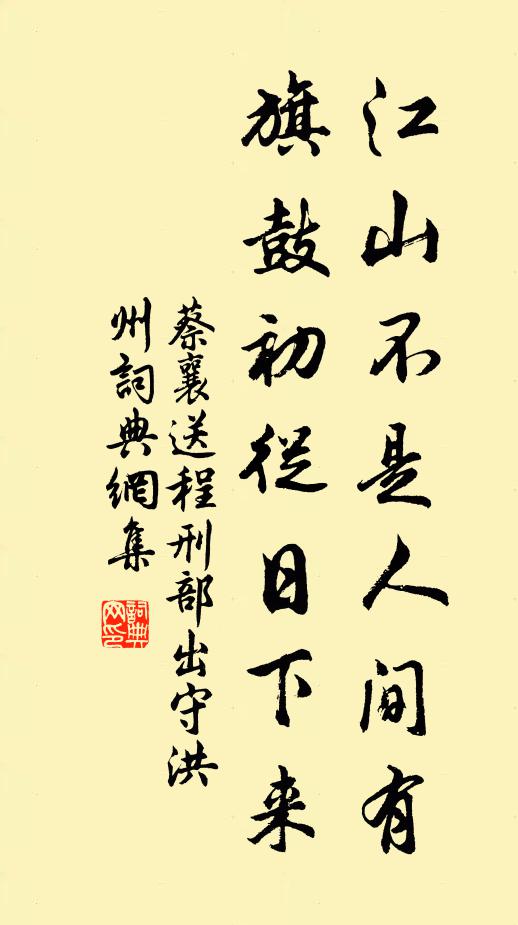 江山不是人间有
旗鼓初從日下来
蔡襄送程刑部出守洪
州詞典網集
詞典
网印